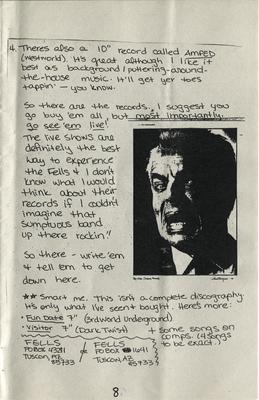 4. Theres also a 10" record called AMPED
(Westworld). It's great although I like it
best as background/puttering-around-
the-house music. It'll get yer toes
tappin' — you know.
So there are the records. I suggest you
go buy 'em all, but most importantly,
go see 'em live!
The live shows are
definitely the best
way to experience
the Fells & I don't
know what I would
think about their
records if I couldn't
imagine that
sumptuous band
up there rockin'!!
So there - write 'em
& tell 'em to get
down here.
** Smart me. This isn't a complete discography.
It's only what I've seen & bought. Here's more:
• Fun Date 7" (3rd World Underground)
• Visitor 7" (Dark Twist) + some songs on
comps. (4 songs
to be exact.)
FELLS
PO BOX 43211
TUSCON, AZ
85733
or
FELLS
PO BOX 11641
TUSCON, AZ
85733
8